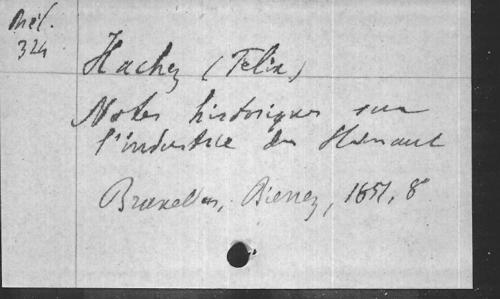 Mél.
324
Hachez (Felix)
Notes historiques sur
l'industrie du Hainaut
Bruxelles, 1851, 8°